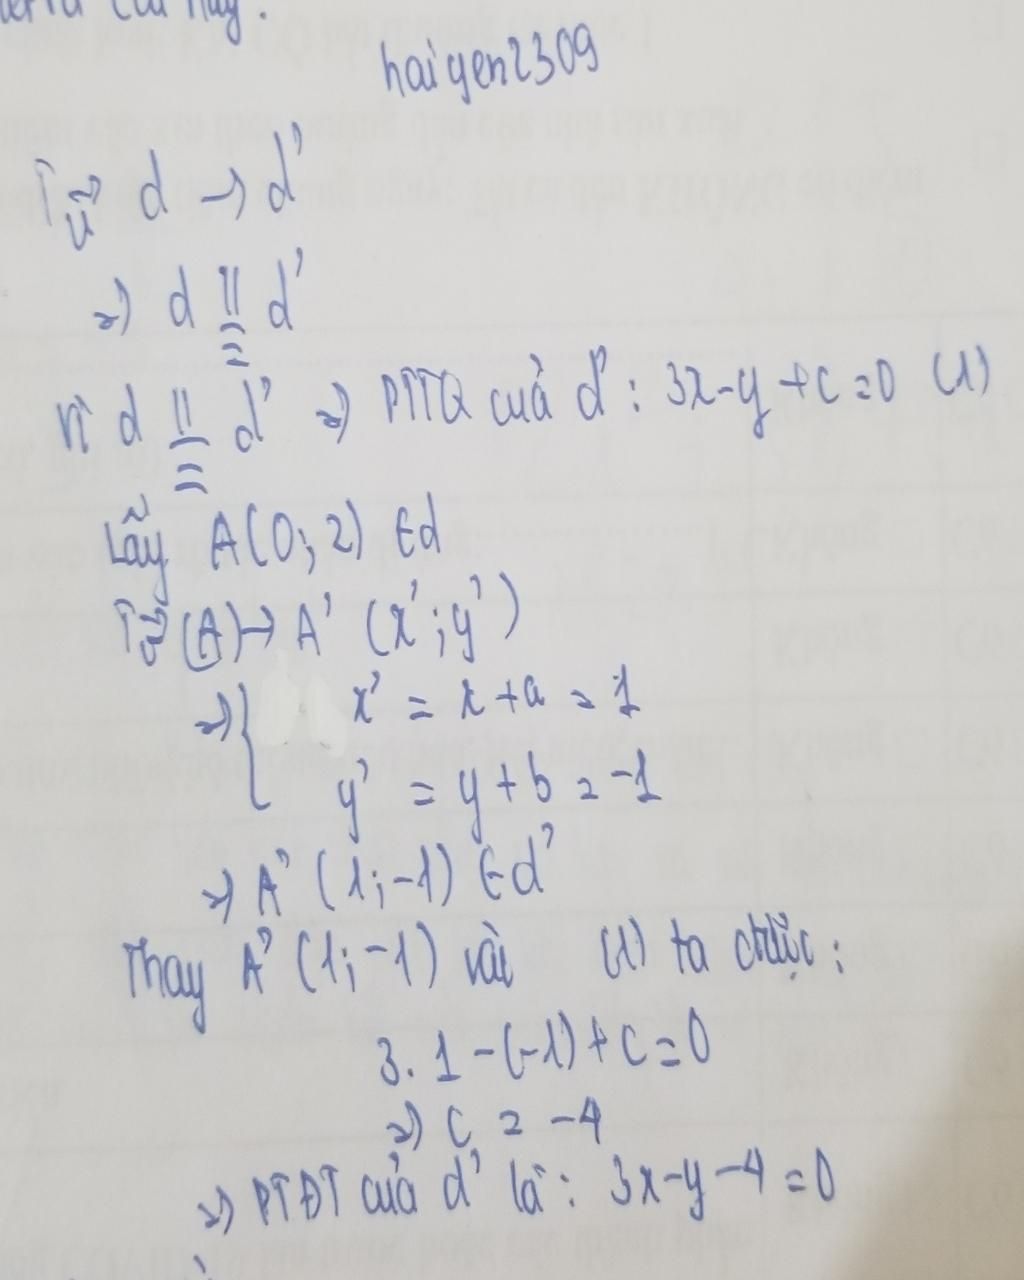 cái này.
haiyen2309
Tv⃗ d → d'
⇒ d ∥≡ d'
Vì d ∥≡ d' ⇒ PTTQ của d' : 3x-y+c=0 (1)
Lấy A(0;2) ∈ d
Tv⃗ (A) → A' (x';y')
⇒ { x' = x+a = 1
y' = y+b = -1
⇒ A' (1;-1) ∈ d'
Thay A' (1;-1) vài (1) ta được :
3. 1 -(-1)+c=0
⇒ c = -4
⇒ PTĐT của d' là : 3x-y-4=0